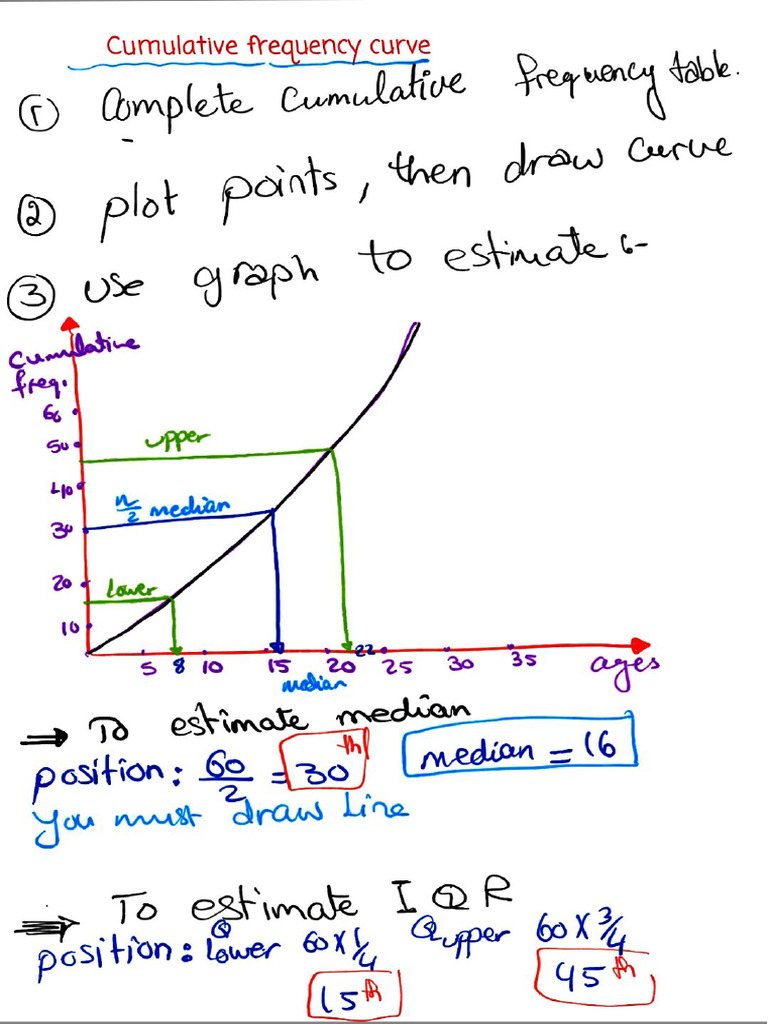 Cumulative frequency curve
① Complete cumulative frequency table.
② plot points, then draw curve
③ use graph to estimate :-
Cumulative
freq.
60
50
upper
40
n/2 median
30
20
Lower
10
5 8 10 15 20 22 25 30 35 ages
median
⇒ To estimate median
position: 60/2 = 30th
median = 16
You must draw Line
⇒ To estimate IQR
position: Q Lower 60 x 1/4 Q upper 60 x 3/4
15th 45th